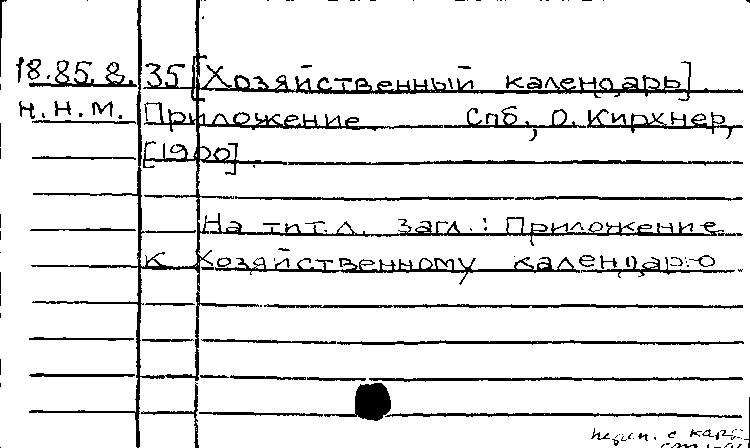 18.85.8.35 [Хозяйственный календарь].
Н.Н.М. Приложение. Спб., О. Кирхнер,
[1900].
На тит.л. загл.: Приложение
к Хозяйственному календарю
с карт.